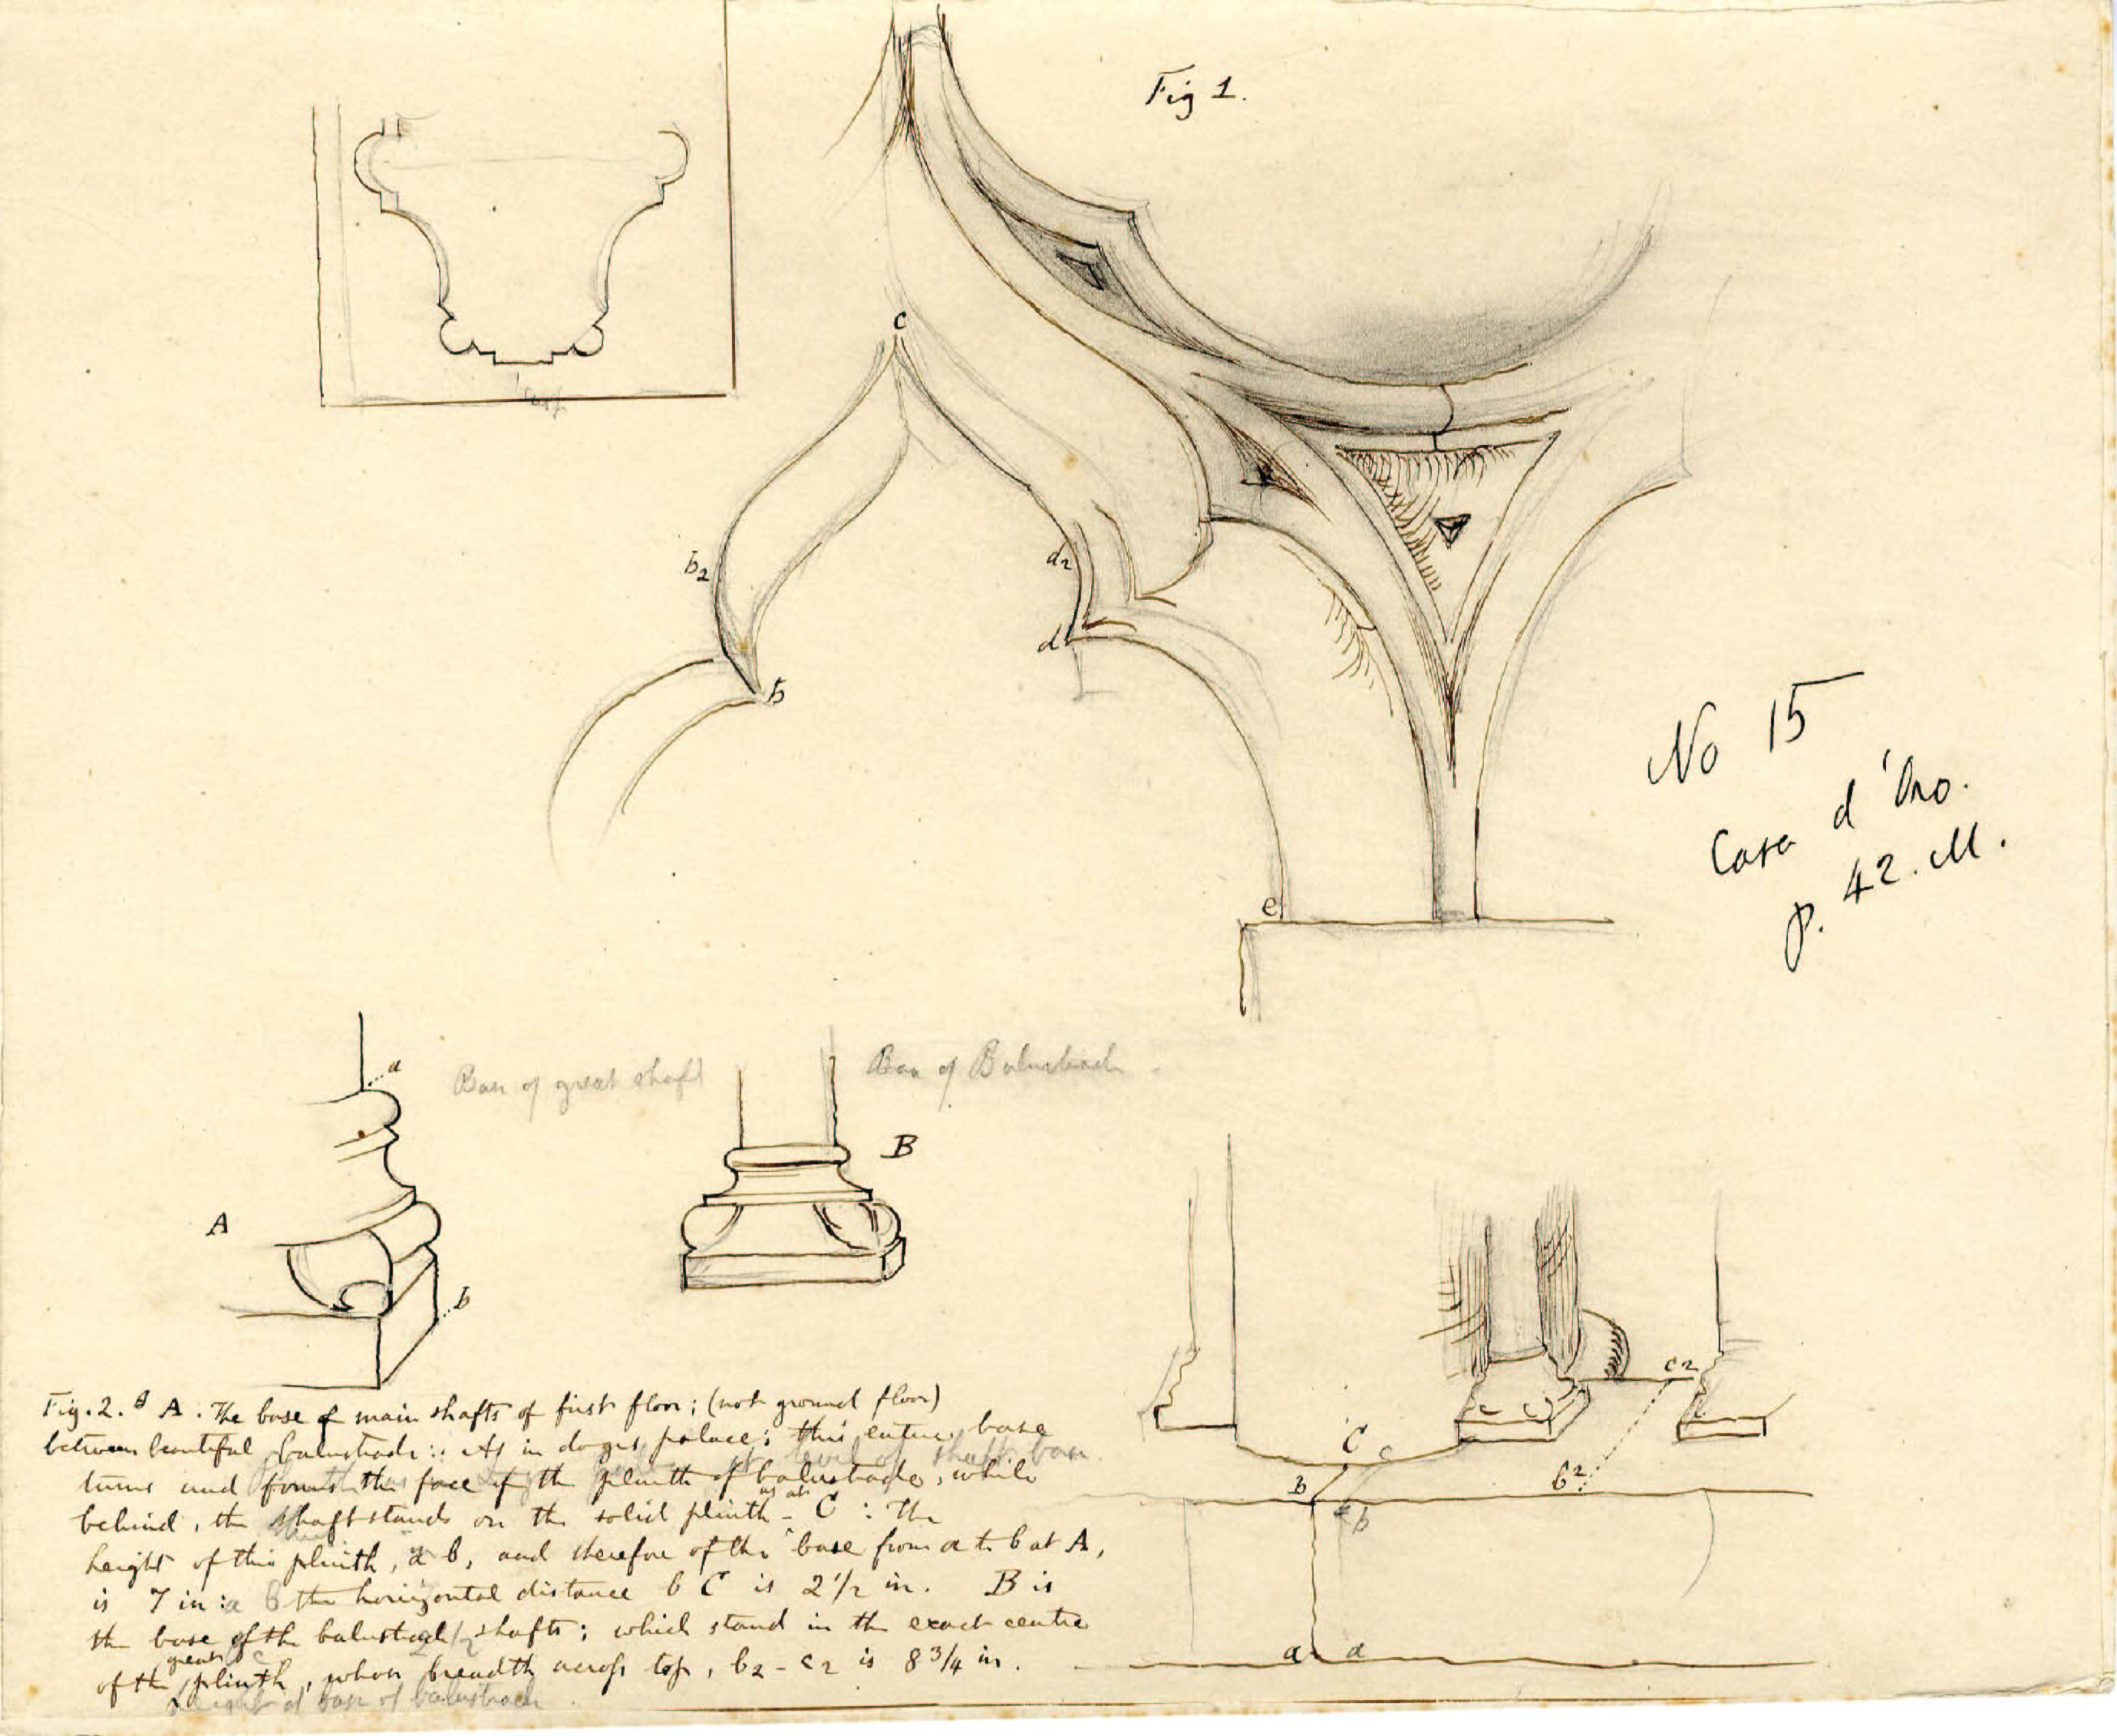 Fig 1.
Cusp
c
b2
d2
d
b
e
No 15
Casa d'Oro.
p. 42. M.
a
Base of great shaft
Base of Balustrade
B
A
b
Fig. 2. A. The base of main shafts of first floor; (not ground floor)
between beautiful balustrade: As in doges palace; this entire base
level of shaft base.
turns and forms the face of the plinth of balustrade, while
behind, the shaft stands on the solid plinth - as at C: The
height of this plinth, a b, and therefore of the base from a to b at A,
is 7 in: the horizontal distance b C is 2 1/2 in. B is
the base of the balustrade shafts; which stand in the exact centre
of the great plinth, whose breadth across top, b2 - c2 is 8 3/4 in.
height of base of balustrade
c2
C c
B
b2
b
a a